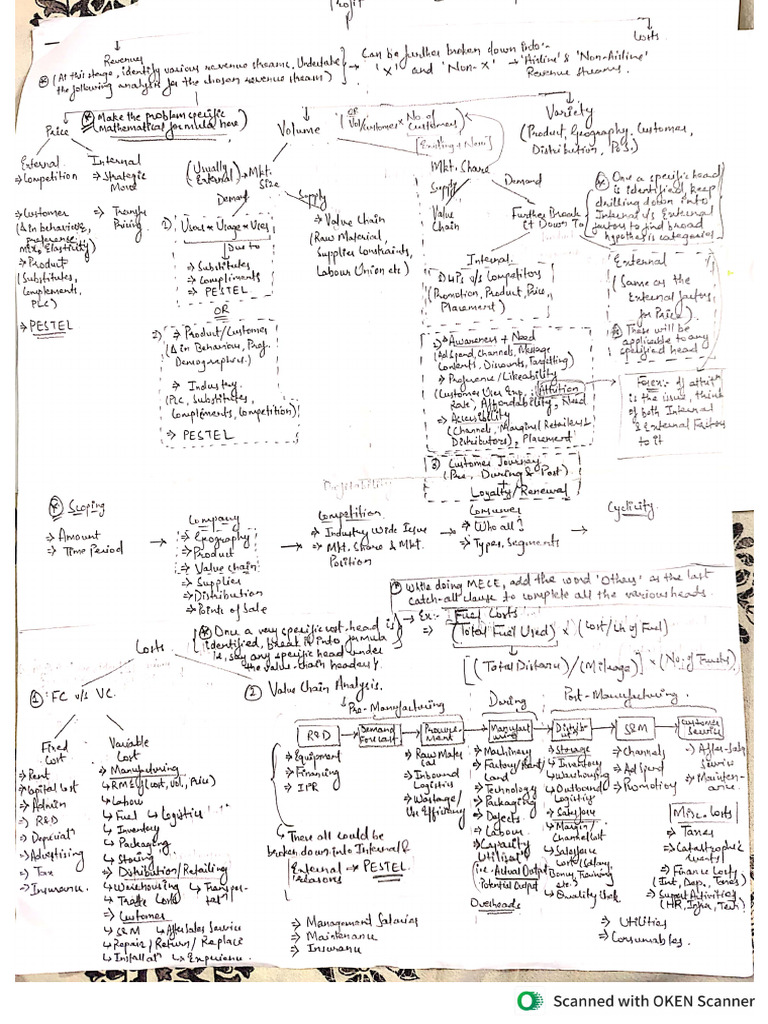 Profit
Revenues
Costs
(At this stage, identify various revenue streams. Undertake
the following analysis for the chosen revenue stream)
Can be further broken down into:-
'X' and 'Non-X' → 'Airline' & 'Non-Airline'
Revenue streams.
Price
Make the problem specific
mathematical formula here
Volume
(OR
Vol/customer × No. of
Customers)
[Existing + New]
Variety
(Product, Geography, Customer,
Distribution, PoS.)
External
⇒ Competition
⇒ Customer
(Δ in behaviour,
preference,
Mix, Elasticity)
⇒ Product
(Substitutes,
Complements,
PLC)
⇒ PESTEL
Internal
⇒ Strategic
Move
⇒ Transfer
Pricing
(Usually
External)
Mkt.
Size
Demand
1) Users × Usage × Uses
Due to
⇒ Substitutes
⇒ Compliments
⇒ PESTEL
OR
2) ⇒ Product/Customer
(Δ in Behaviour, Pref.
Demographics.)
⇒ Industry
(PLC, Substitutes,
Compliments, Competition)
⇒ PESTEL
Supply
⇒ Value Chain
(Raw Material,
Supplier Constraints,
Labour Union etc)
Mkt. Share
Supply
Value
Chain
Demand
Further Break
it Down To
Once a specific head
is identified keep
drilling down into
Internal v/s External
factors to find broad
hypothesis categories
Internal
1) 4P's v/s Competitors
(Promotion, Product, Price,
Placement)
2) ⇒ Awareness + Need
(Ad Spend, Channels, Message
Contents, Discounts, Targetting)
⇒ Preference/Likeability
(Customer User Exp., Attrition
Rate), Affordability, Need
⇒ Accessibility
(Channels, Marginal Retailers &
Distributors), Placement
3) Customer Journey
(Pre, During & Post)
Loyalty/Renewal
External
(Same as the
External factors
for Price).
These will be
applicable to any
specified head
For ex:- If attrit
is the issue, think
of both Internal
& External Factors
to it
Profitability
Scoping
⇒ Amount
⇒ Time Period
Company
⇒ Geography
⇒ Product
⇒ Value chain
⇒ Supplies
⇒ Distribution
⇒ Points of Sale
Competition
⇒ Industry Wide Issue
⇒ Mkt. Share & Mkt.
Position
Consumer
⇒ Who all?
⇒ Types, Segments
Cyclicity
While doing MECE, add the word 'Others' as the last
catch-all clause to complete all the various heads.
Costs
Once a very specific cost-head is
identified, break it into formula
ie, say any specific head under
the value-chain headers
→ Ex:- Fuel Costs
⇒ (Total Fuel Used) × (Cost/Ltr of Fuel)
[(Total Distance)/(Mileage)] × (No. of Trucks)
1) FC v/s VC.
Fixed
Cost
⇒ Rent
⇒ Capital Cost
⇒ Admin
⇒ R&D
⇒ Depreciat
⇒ Advertising
⇒ Tax
⇒ Insurance
Variable
Cost
⇒ Manufacturing
↳ RMEs (cost, vol., price)
↳ Labour
↳ Fuel ↳ Logistics
↳ Inventory
↳ Packaging
↳ Storing
⇒ Distribution/Retailing
↳ Warehousing ↳ Transpor-
tat
⇒ Customer
↳ S&M ↳ After Sales Service
↳ Repair/Return/Replace
↳ Installat ↳ Experience
2) Value Chain Analysis.
Pre-Manufacturing
During
Post-Manufacturing.
R&D
Demand
Forecast
Procure-
ment
Manufact
uring
Distrib-
ut
S&M
Customer
Service
⇒ Equipment
⇒ Financing
⇒ IPR
⇒ Raw Mater
ial
⇒ Inbound
Logistics
⇒ Wastage/
Use Efficiency
⇒ Machinery
⇒ Factory/Plant/
Land
⇒ Technology
⇒ Packaging
⇒ Defects
⇒ Labour
⇒ Capacity
Utilisat
(i.e. Actual Output
Potential Output
Overheads
⇒ Storage
↳ Inventory
↳ Warehousing
⇒ Outbound
Logistics
⇒ Salesforce
↳ Margin/
Channel Cost
↳ Salesforce
Cost (Salary,
Bonus, Training
etc.)
↳ Quality Check
⇒ Channels
⇒ Ad Spend
⇒ Promotion
⇒ After-Sales
Service
⇒ Mainten-
ance
Misc. Costs
⇒ Taxes
⇒ Catastrophic
events
⇒ Finance Costs
(Int., Dep., Taxes)
⇒ Support Activities
(HR, Infra, Tech)
⇒ Utilities
⇒ Consumables.
↳ These all could be
broken down into Internal &
External → PESTEL
reasons
⇒ Management Salaries
⇒ Maintenance
⇒ Insurance
Scanned with OKEN Scanner